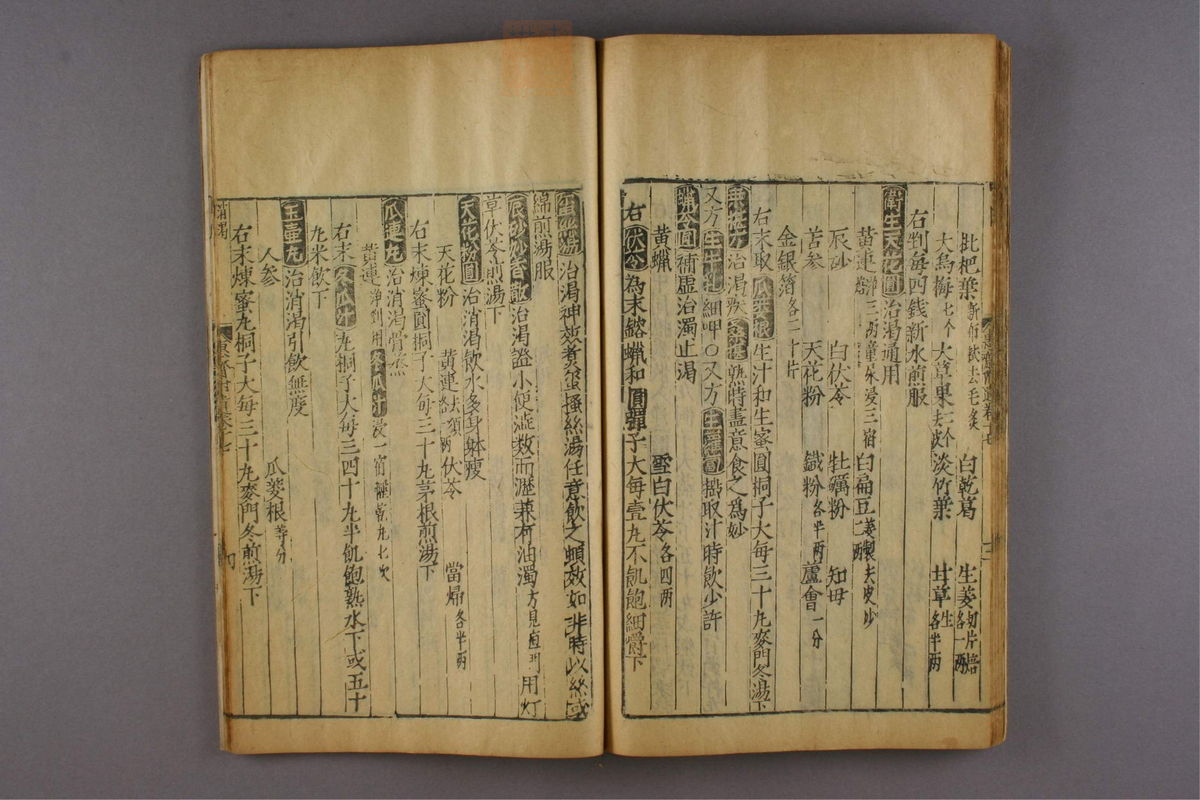 枇杷葉新布拭去毛炙 白乾葛 生姜切片焙各一兩
大烏梅七个 大草果二个去皮 淡竹葉 甘草生各半兩
右判每四錢新水煎服
衛生天花圓治渴通用
黃連淨三兩童尿浸三宿 白扁豆姜製去皮炒二兩
辰砂 白伏苓 牡蠣粉 知母
苦參 天花粉 鐵粉各半兩 蘆會一分
金銀箔各二十片
右末取瓜蔞根生汁和生蜜圓桐子大每三十丸麥門冬湯下
治渴疾桑椹熟時盡意食之爲妙
又方生牛乳細呷○又方生搗取汁時飲少許
圓補虛治濁止渴
黃蠟 雪白伏苓各四兩
右伏苓為末鎔蠟和圓彈子大每壹丸不飢飽細嚼下
治渴神效煮蚕搔絲湯任意飲之頓效如非時以絲或
綿煎湯服
辰砂妙香散治渴證小便澁数而瀝兼有油濁方見用灯
草伏苓煎湯下
天花粉圓治消渴飲水多身躰瘦
天花粉 黃連去須各一兩 伏苓 當歸各半兩
右末煉蜜圓桐子大每三十丸茅根煎湯下
瓜連丸治消渴骨蒸
黃連淨剉用冬瓜汁浸一宿乾凡七次
右末冬瓜汁丸桐子大每三四十丸半飢飽熟水下或五十
丸米飲下
玉壷丸治消渴引飲無度
人參 瓜蔞根等分
右末煉蜜丸桐子大每三十丸麥門冬煎湯下
消渴